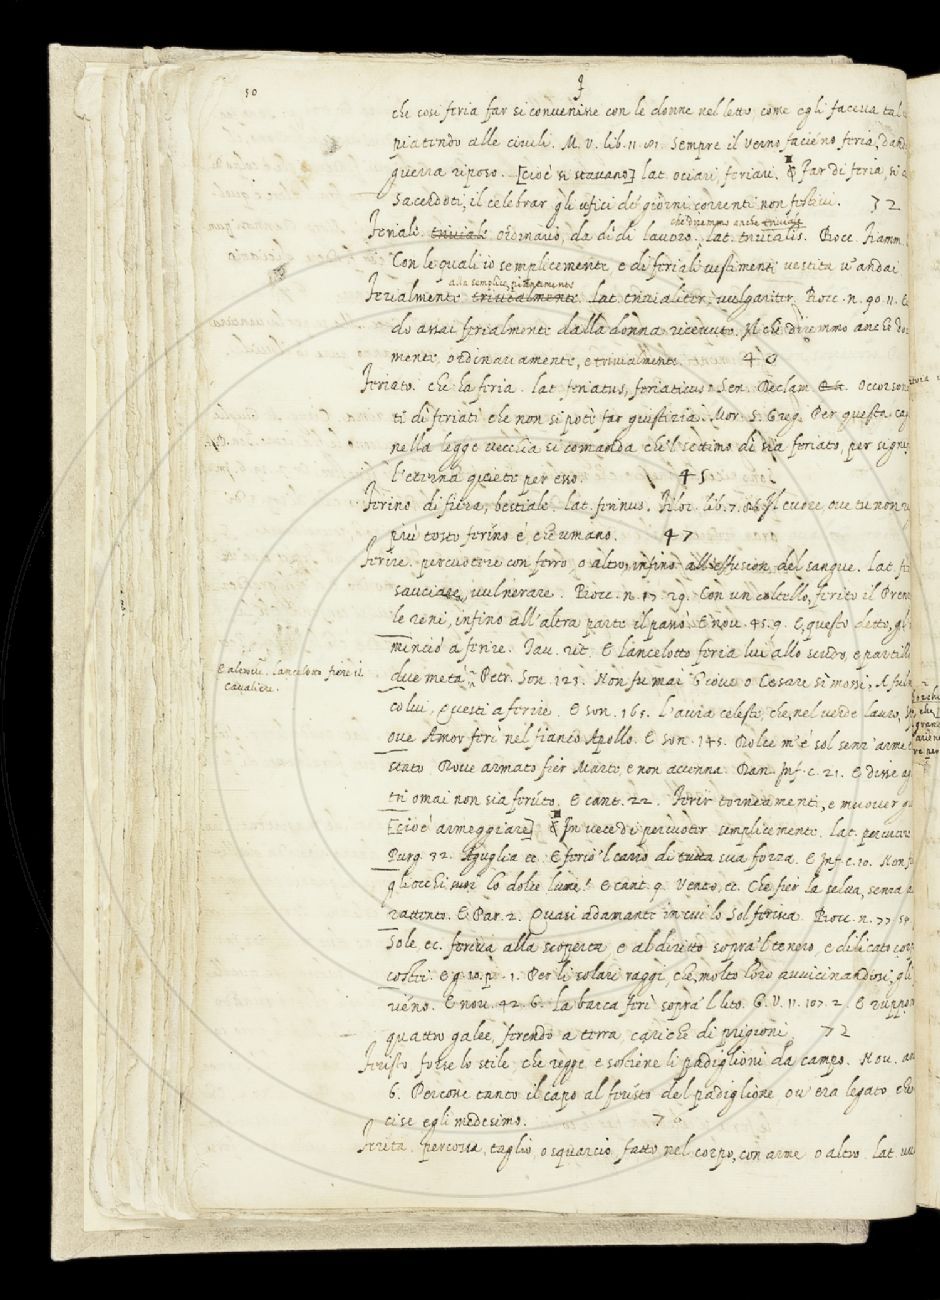 50
F
che così feria far si convenisse con le donne nel letto, come egli faceva
piatendo alle civili. M. V. lib. 11. 81. Sempre il verno faciéno feria,
guerra riposo. [cioè si stavano] lat. ociari, feriari. § Far di feria,
Sacerdoti, il celebrar gli ufici de' giorni correnti non festivi. 72
che diremmo anche triviale
Feriale. triviale ordinario, da dì di lavoro. lat. trivialis. Bocc. Fiamm.
Con le quali io semplicemente, e di feriali vestimenti vestita v'andai
alla semplice,
Ferialmente. trivialmente. lat. trivialiter, vulgariter. Bocc. n. 90. 11. E
do assai ferialmente dalla donna ricevuto. Il che diremmo anche
mente, ordinariamente, e trivialmente. 40
Feriato. che ha feria. lat. feriatus, feriaticus. Sen. Declam. Occorsono
ti dì feriati che non si potè far giustizia. Mor. S. Greg. Per questa
nella legge vecchia si comanda che 'l settimo dì sia feriato, per
l'eterna quiete per esso. 45
Ferino. di fiera, bestiale. lat. ferinus. Filoc. lib. 7. Il cuore, ove tu non
più tosto ferino è, che umano. 47
Ferire. percuotere con ferro, o altro, infino all'effusion del sangue. lat.
sauciare, vulnerare. Bocc. n. 17. 29. Con un coltello, ferito il Prenze
le reni, infino all'altra parte il passò. E nov. 45. 9. E, questo detto,
minciò a ferire. Tav. rit. E Lancelotto feria lui allo scudo, e
E altrove. Lancelotto fiere il
cavaliere.
due metà. Petr. Son. 123. Non fu mai Giove o Cesare sì mossi, A
colui, Questi a ferire. E son. 165. L'aura celeste, che, nel verde lauro,
ove Amor ferì nel fianco Apollo. E son. 145. Dolce m'è sol senz' arme
stato Dove armato fier Marte, e non accenna. Dan. Inf. c. 21. E disse
tri omai non sia feruto. E cant. 22. Ferir torneamenti, e muover
[cioè armeggiare] § In vece di percuoter semplicemente. lat. percutere
Purg. 32. Aguglia ec. E ferio 'l carro di tutta sua forza. E Inf. c. 10. Non
gli occhi suoi lo dolce lume? E cant. 9. Vento, ec. Che fier la selva, senza
rattento. E Par. 2. Quasi adamante in cui lo Sol ferisca. Bocc. n. 77.
Sole ec. feriva alla scoperta e al diritto sopra 'l tenero, e dilicato
costei. E g. 10. p. 1. Per li solari raggi, che, molto loro avvicinandosi,
riéno. E nov. 42. 6. La barca ferì sopra 'l lito. G. V. 11. 107. 2. E
quattro galee, ferendo a terra, cariche di prigioni, 72
Feristo. forse lo stile, che regge e sostiene li padiglioni da campo. Nov.
6. Percone tanto il capo al feristo del padiglione ov' era legato, che
cise egli medesimo.
Ferita. percossa, taglio, o squarcio, fatto nel corpo, con arme o altro. lat.